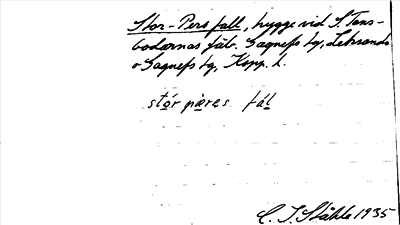 Stor-Pers fall, hygge vid S. Tans-
bodarnas fäb. Gagnefs tg, Leksands
o Gagnefs tg, Kopp. l.
stór pàres fál
C. I. Ståhle 1935